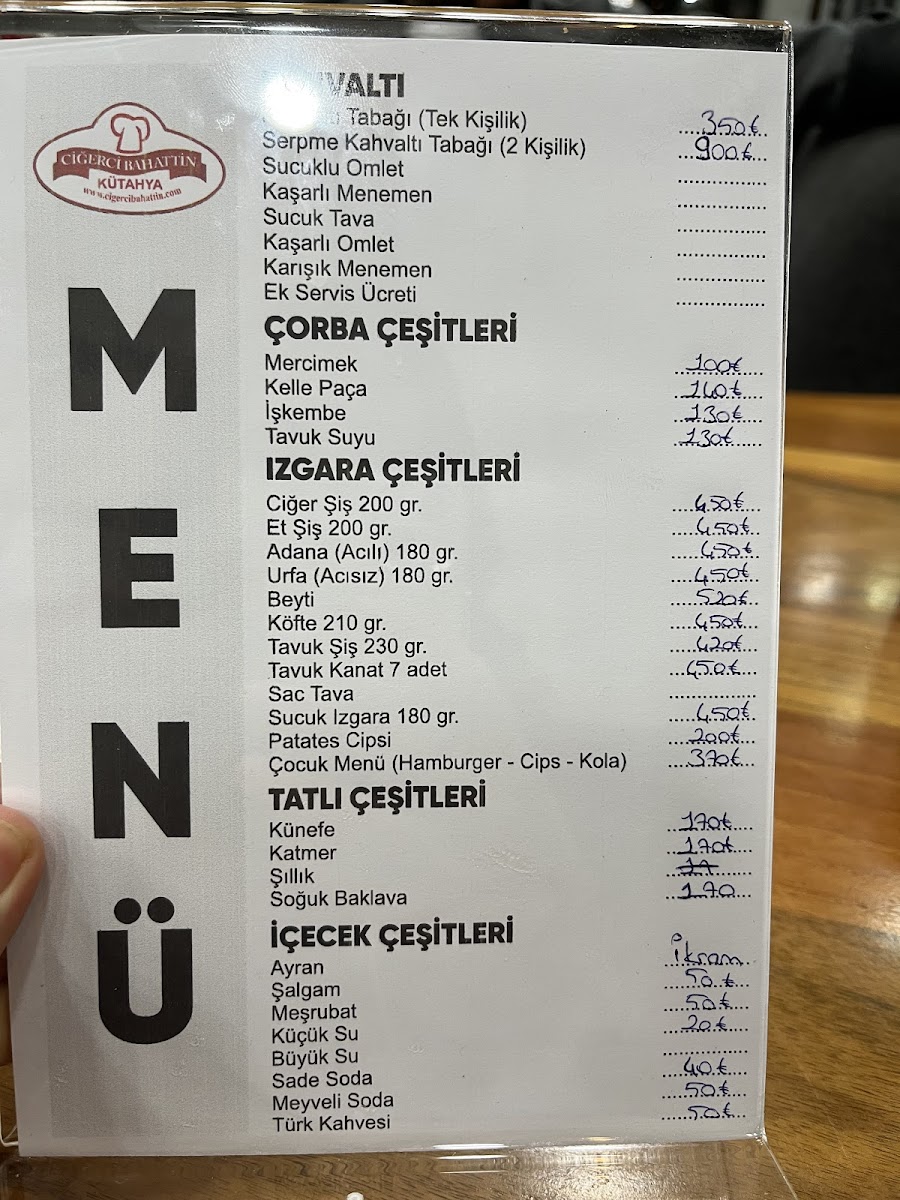 CİĞERCİ BAHATTİN
KÜTAHYA
www.cigercibahattin.com
MENÜ
Tabağı (Tek Kişilik) 350₺
Serpme Kahvaltı Tabağı (2 Kişilik) 900₺
Sucuklu Omlet
Kaşarlı Menemen
Sucuk Tava
Kaşarlı Omlet
Karışık Menemen
Ek Servis Ücreti
ÇORBA ÇEŞİTLERİ
Mercimek 100₺
Kelle Paça 140₺
İşkembe 130₺
Tavuk Suyu 130₺
IZGARA ÇEŞİTLERİ
Ciğer Şiş 200 gr. 450₺
Et Şiş 200 gr. 450₺
Adana (Acılı) 180 gr. 450₺
Urfa (Acısız) 180 gr. 450₺
Beyti 520₺
Köfte 210 gr. 450₺
Tavuk Şiş 230 gr. 420₺
Tavuk Kanat 7 adet 450₺
Sac Tava
Sucuk Izgara 180 gr. 450₺
Patates Cipsi 200₺
Çocuk Menü (Hamburger - Cips - Kola) 370₺
TATLI ÇEŞİTLERİ
Künefe 170₺
Katmer 170₺
Şıllık
Soğuk Baklava 170
İÇECEK ÇEŞİTLERİ
Ayran İkram
Şalgam 50₺
Meşrubat 50₺
Küçük Su 20₺
Büyük Su
Sade Soda 40₺
Meyveli Soda 50₺
Türk Kahvesi 50₺